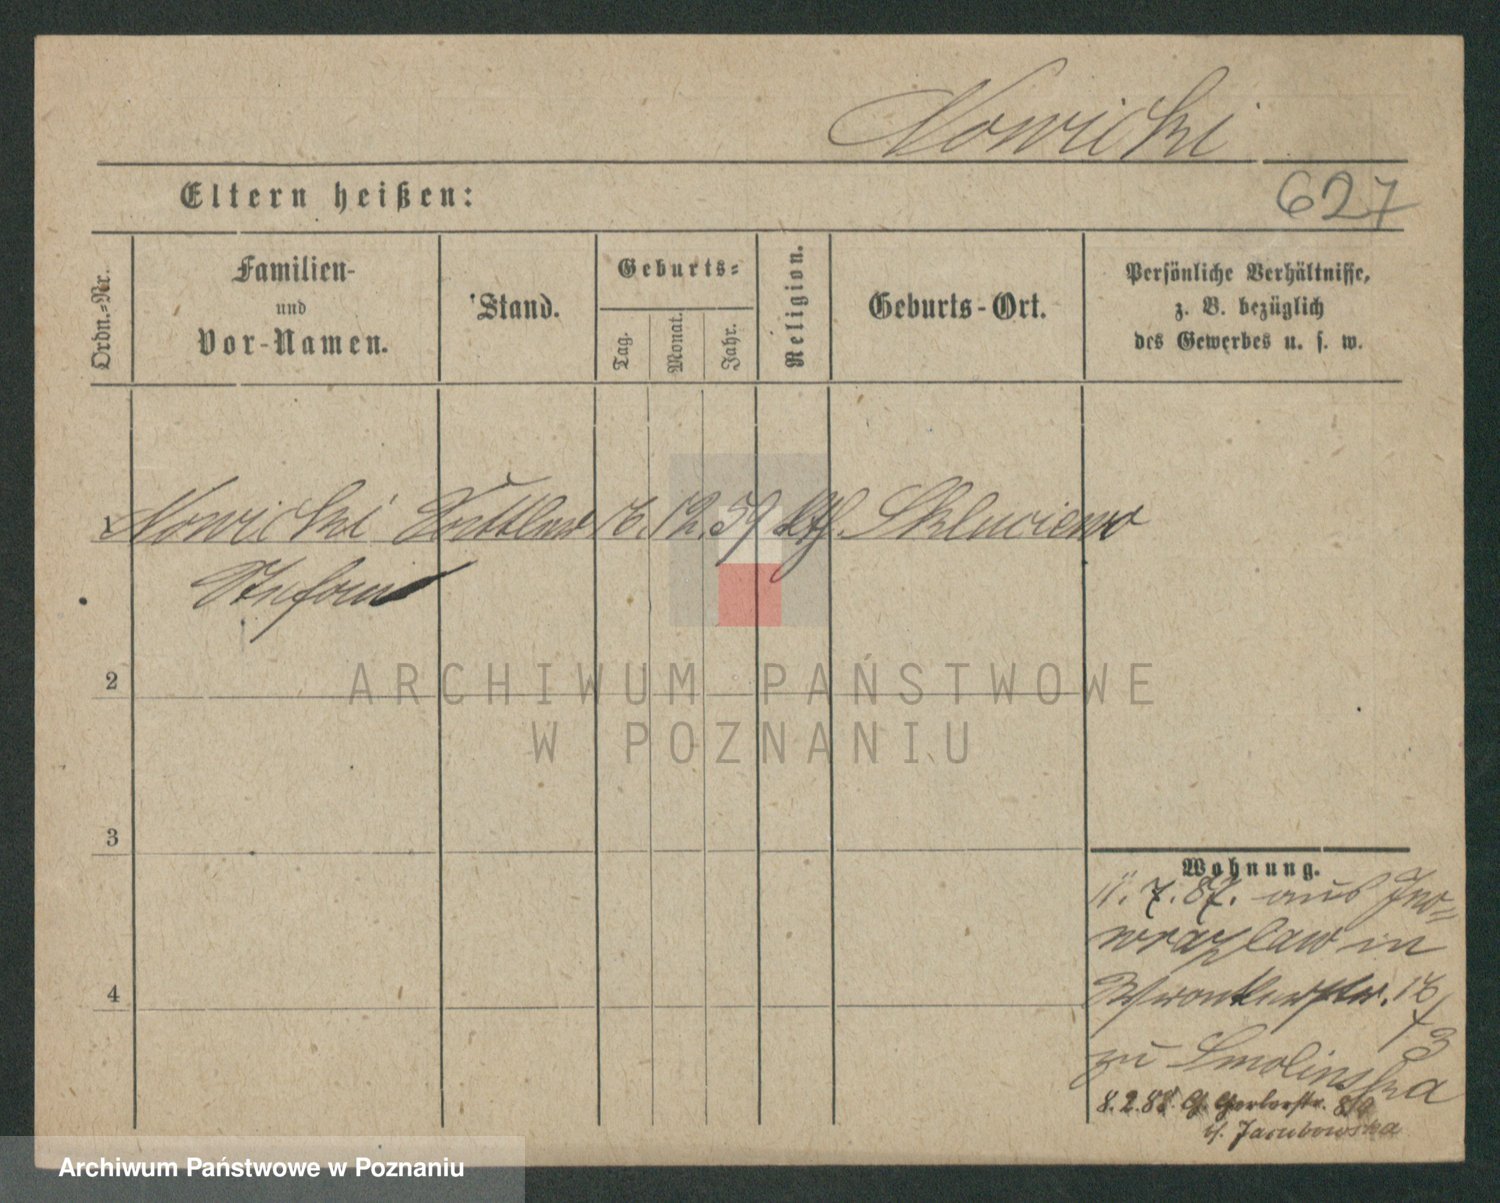 Nowicki
Eltern heißen:
627
Ordn.-Nr.
Familien-
und
Vor-Namen.
Stand.
Geburts-
Tag.
Monat.
Jahr.
Religion.
Geburts-Ort.
Persönliche Verhältnisse,
z. B. bezüglich
des Gewerbes u. s. w.
1 Nowicki Sattler 16. 12. 59 kth.
Stefan
2
ARCHIWUM PAŃSTWOWE
W POZNANIU
3
4
Wohnung.
11. 7. 87. aus Ino-
wrazlaw in
Wronkerstr. 16/
13
zu Smolinska
8. 2. 88. Gerberstr. 8/9
b/. Jacubowska
Archiwum Państwowe w Poznaniu